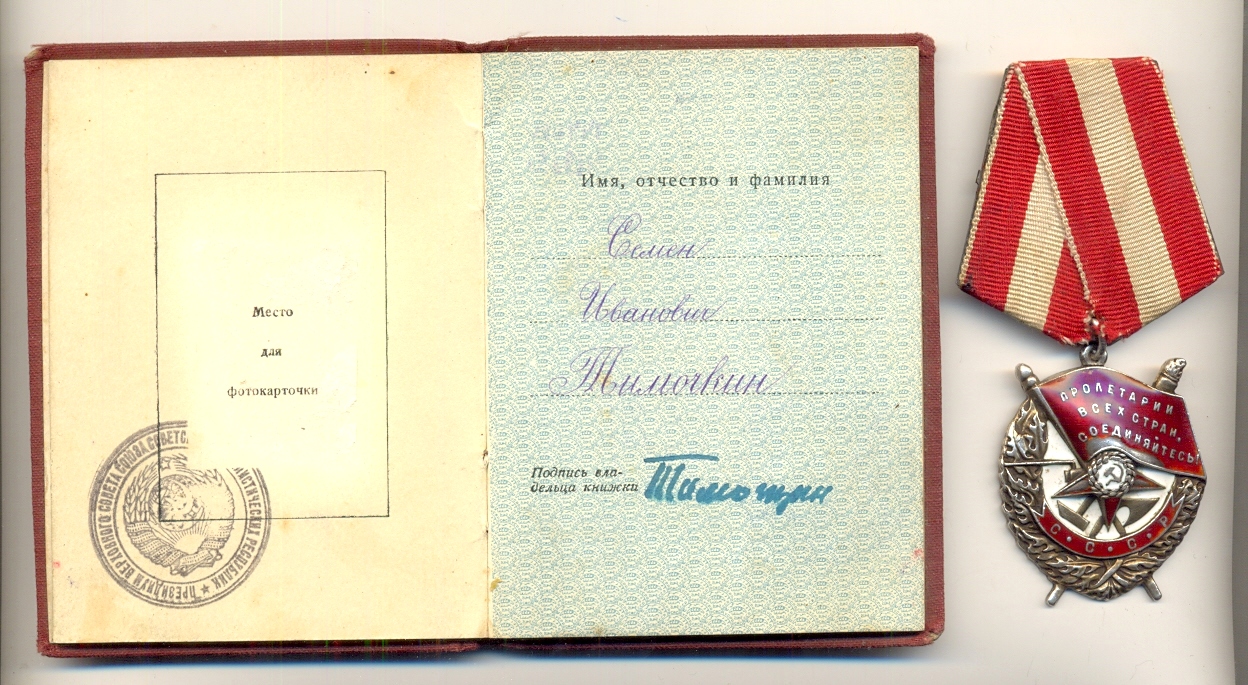 Место
для
фотокарточки
ПРЕЗИДИУМ ВЕРХОВНОГО СОВЕТА СОЮЗА СОВЕТСК ИСТИЧЕСКИХ РЕСПУБЛИК
Имя, отчество и фамилия
Семен
Иванович
Тимочкин
Подпись вла-
дельца книжки
ПРОЛЕТАРИИ
ВСЕХ СТРАН,
СОЕДИНЯЙТЕСЬ!
С·С·С·Р